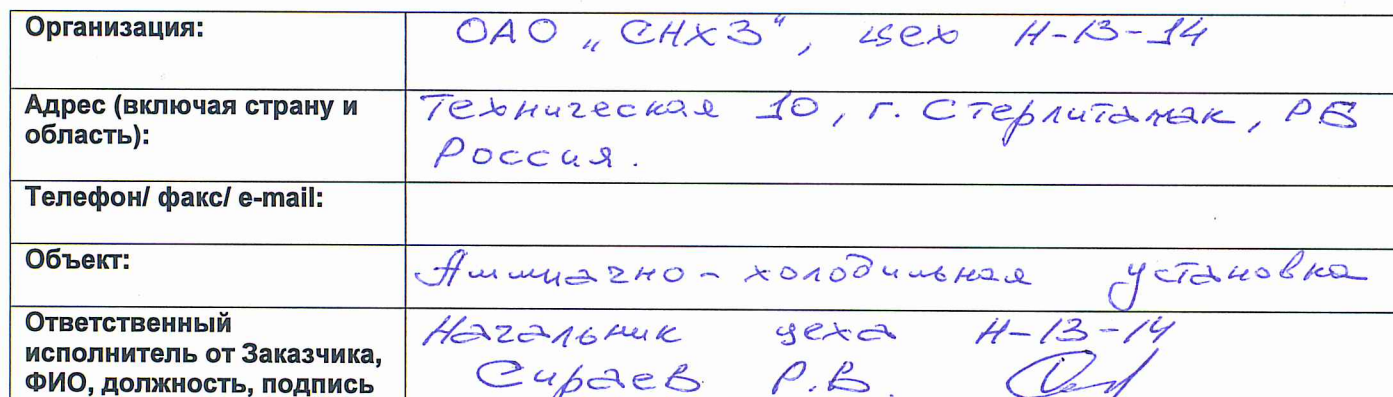 Организация: ОАО „СНХЗ“, цех Н-13-14
Адрес (включая страну и
область):
Техническая 10, г. Стерлитамак, РБ
Россия.
Телефон/ факс/ e-mail:
Объект: Аммиачно-холодильная установка
Ответственный
исполнитель от Заказчика,
ФИО, должность, подпись
Начальник цеха Н-13-14
Сираев Р.В.